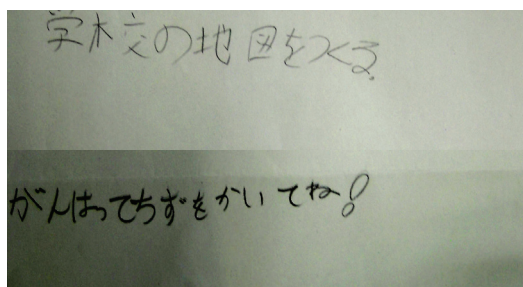 学校の地図をつくる。
がんばってちずをかいてね!